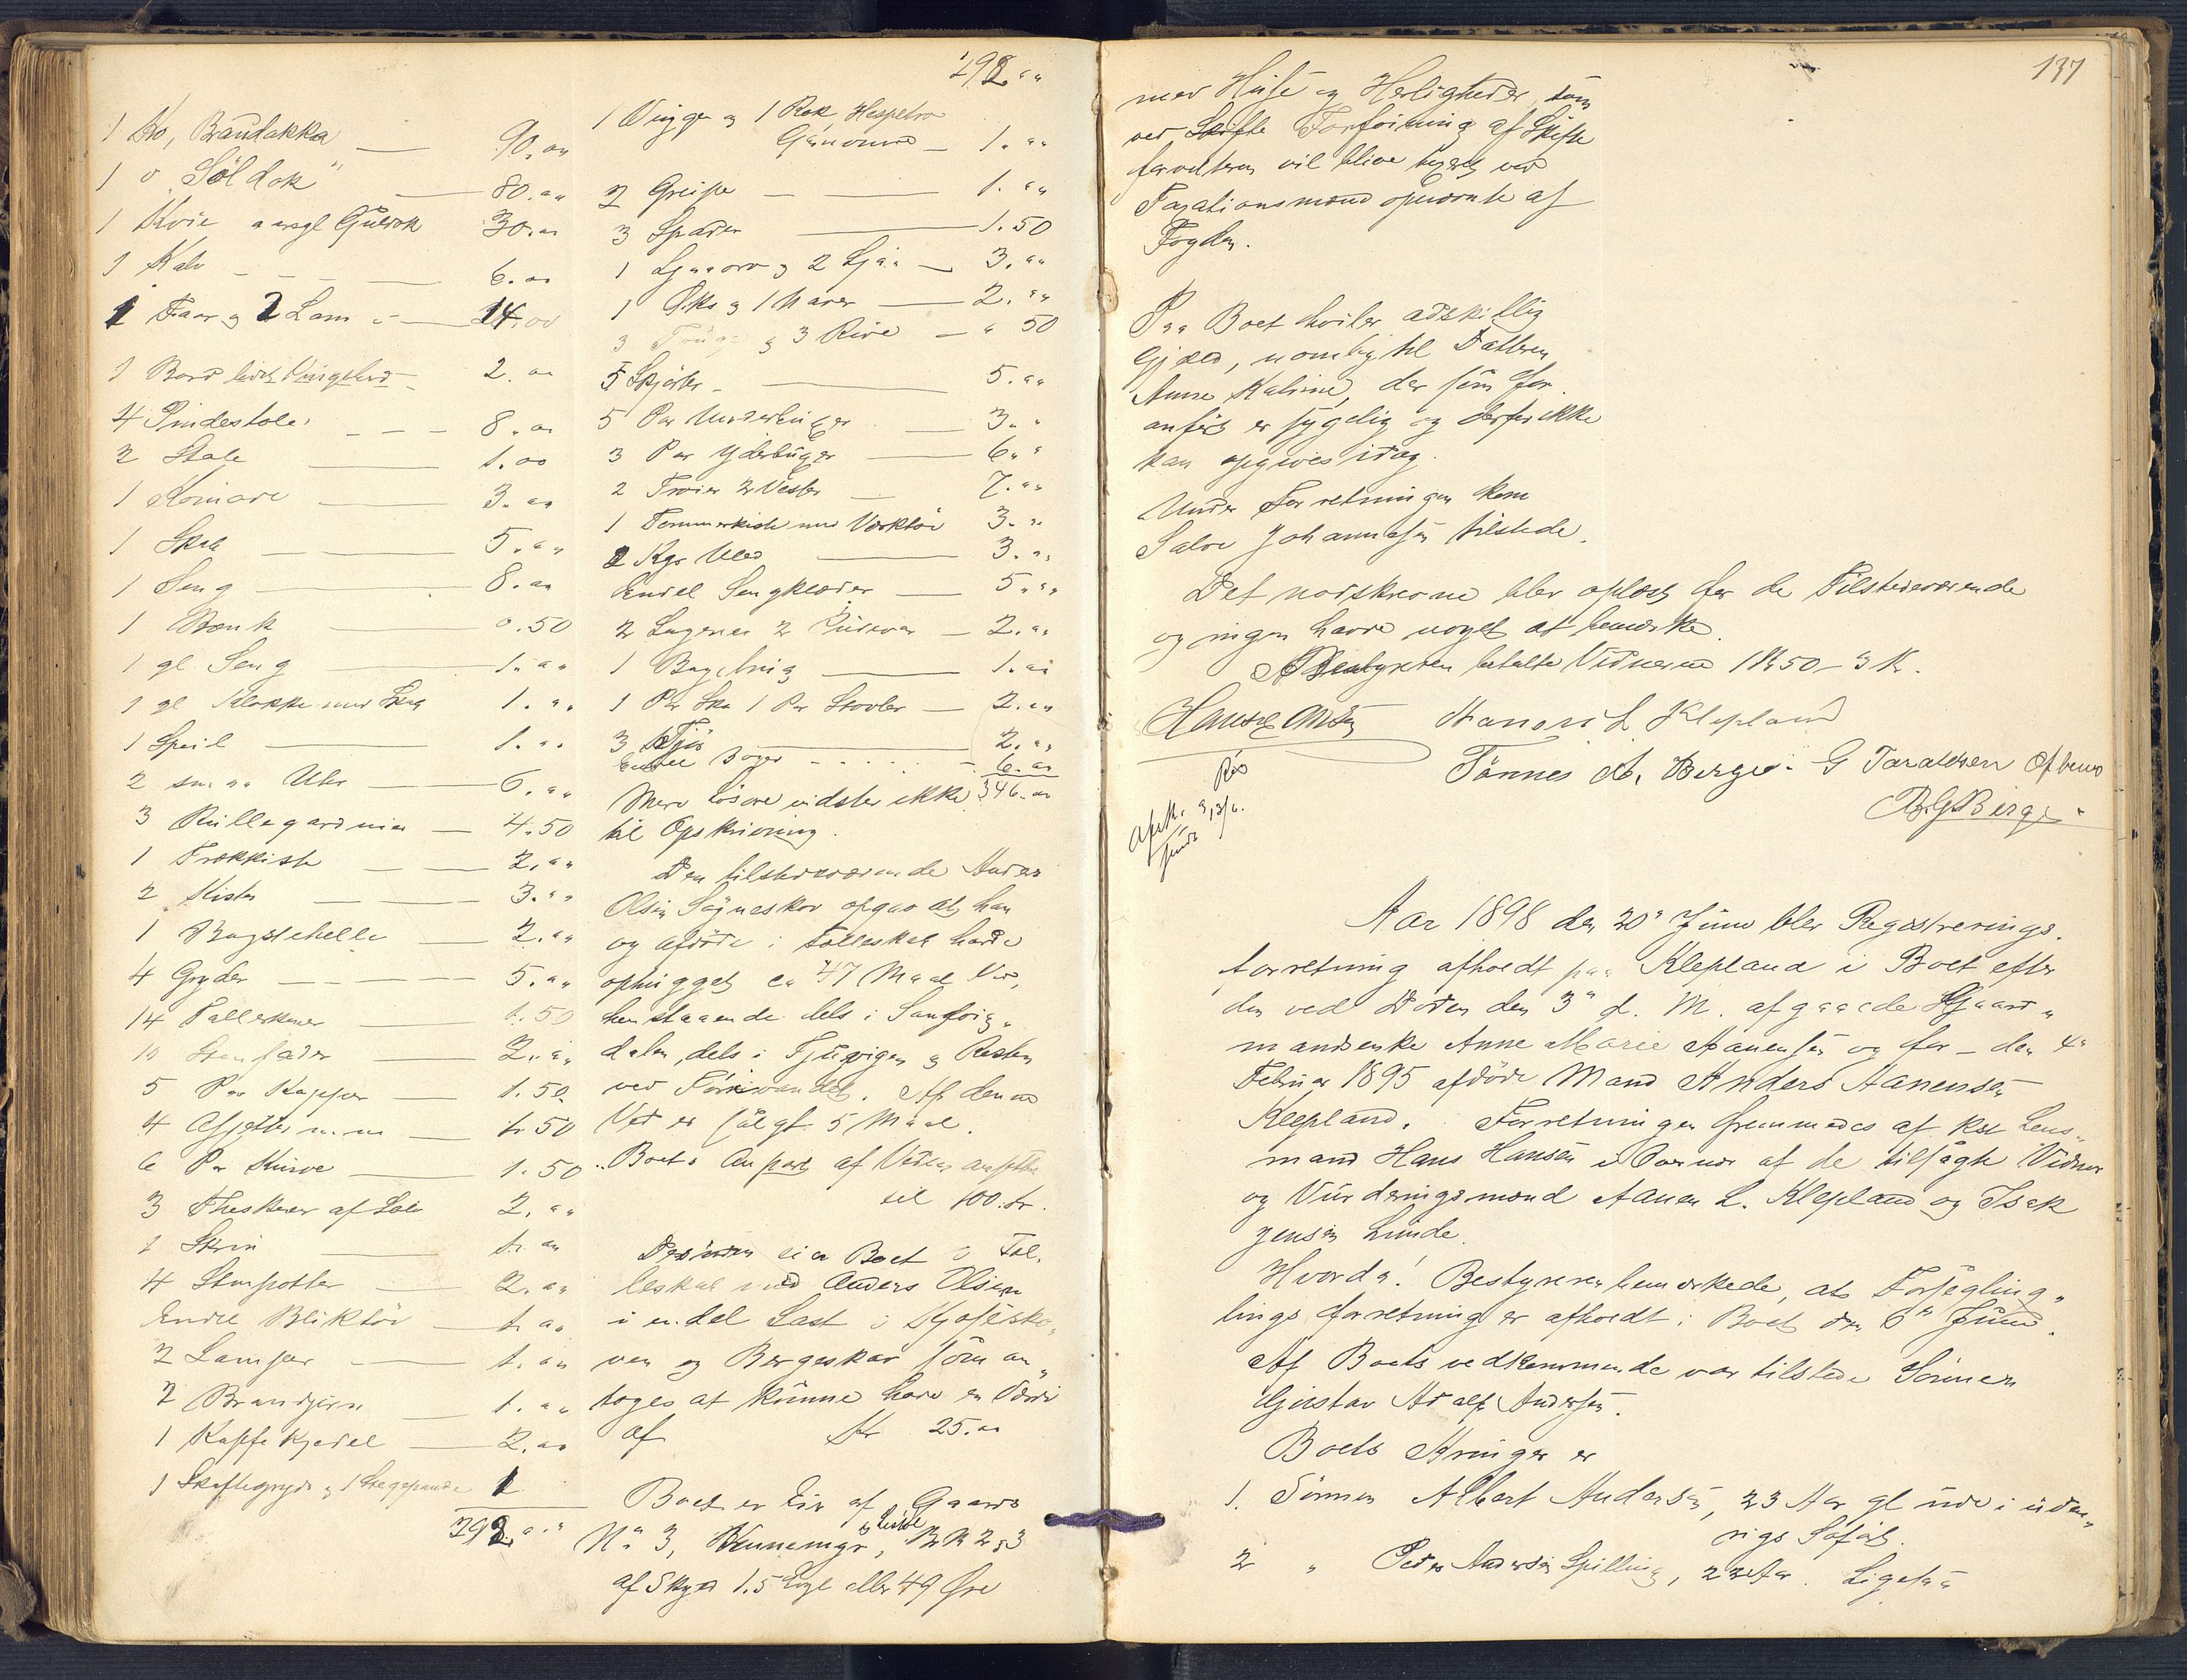 1 Ko, Brandakka — 90.00
1 " "Söldok" — 80.00
1 Kvie aarsgl Guldrok 30.00
1 Kalv — 6.00
1 Faar og 2 Lam — 14.00
1 Bord — 2.00
4 Pindestole — 8.00
2 Stole — 1.00
1 Komode — 3.00
1 Skab — 5.00
1 Seng — 8.00
1 Bænk — 0.50
1 gl Seng — 1.00
1 gl Klokke med Skab 1.00
1 Speil — 1.00
2 smaa Uhr — 6.00
3 Rullegardiner — 4.50
1 Trækkiste — 2.00
2 Kister — 3.00
1 Bagstehelle — 2.00
4 Gryder — 5.00
14 Tallerkener 1.50
10 Stenfade — 2.00
5 Par Kopper — 1.50
4 Asjetter m.m — 1.50
6 Par Knive — 1.50
3 Theskeer af Sölv 2.00
1 Skrin — 1.00
4 Stenpotter — 2.00
Endel Bliktöi — 1.00
2 Lamper — 1.00
2 Brandjern — 1.00
1 Kaffekjedel — 2.00
1 Skaftegryde og 1 Stegepande 1
292.00
292.00
1 Vugge og 1 Rok, Hespetræ
Garnvinde — 1.00
2 Greipe — 1.00
3 Spader — 1.50
1 Ljaaorv og 2 Ljaa — 3.00
1 Öks og 1 Naver — 2.00
3 og 3 River — " 50
5 Skjorter — 5.00
5 Par Underbuxer — 3.00
3 Par Yderbuxer — 6.00
2 Tröier 2 Vester — 7.00
1 Tömmerkiste med Værktöi 3.00
2 Kgr Uld — 3.00
Endel Sengklæder — 5.00
2 Lagener 2 Pudevar — 2.00
1 Bag — 1.00
1 Par Sko 1 Par Stövler — 2.00
3 — 2.00
Endel Böger — 6.00
Mere lösöre vidstes ikke 346.00
til Opskrivning.
Den tilstedeværende Anders
Olsen Sögneskar opgav at han
og afdöde i Fælleskab havde
ophugget ca 47 Maal Ved,
henstaaende dels i Sangvig-
dalen, dels i Tjuvigen og Resten
ved . Af denne
Ved er solgt 5 Maal.
Boets Anpart af Veden ansættes
til 100.kr.
Desuden eier Boet i Fæl-
leskab med Anders Olsen
i en del Last i
ven og Bergeskar som an-
toges at kunne have en Værdi
af Kr 25.00
Boet er Eier af Gaards
No 3, , B N 2 & 3
af Skyld 1.5 Engl eller 49 Öre
137
med Huse og Herligheder, som
ved Skifte Forföining af Skifte
forvalteren vil blive taxeret ved
Taxationsmænd opnævnte af
Fogden.
Paa Boet hviler adskillig
Gjæld, nemlig til Datteren
Anne Kaline, der som for
anfört er sygelig og derfor ikke
kan opgives idag.
Under Forretningen kom
Salve Johannesen tilstede.
Det nedskrevne blev oplæst for de Tilstedeværende
og ingen havde noget at bemærke.
Bestyreren betalte Vidnerne 1K50 - 3 K.
Hans Hansen Aanon L Klepland
Tönnes A. Berge G Taraldsen Ofbeno
B. G Berge
Aar 1898 den 20de Juni blev Registrerings-
forretning afholdt paa Klepland i Boet efter
den ved Döden den 3de d. M. afgaaede Gaard-
mandsenke Anne Marie Aanensen og for - den 4de
Februar 1895 afdöde Mand Anders Aanensen
Klepland. Forretningen fremmedes af Kst Lens-
mand Hans Hansen i Overvær af de tilsagte Vidner
og Vurderingsmænd Aanen L. Klepland og Isak
Jensen Lunde.
Hvorda! Bestyreren bemærkede, at Forsegling-
lings forretning er afholdt i Boet den 6te Juni.
Af Boets vedkommende var tilstede Sönnen
Gustav Adolf Andersen.
Boets Arvinger er
1. Sönnen Albert Andersen, 23 Aar gl ude i uden-
rigs Söfart.
2 " Peder Andersen Spilling, 22 Aar. Ligesaa